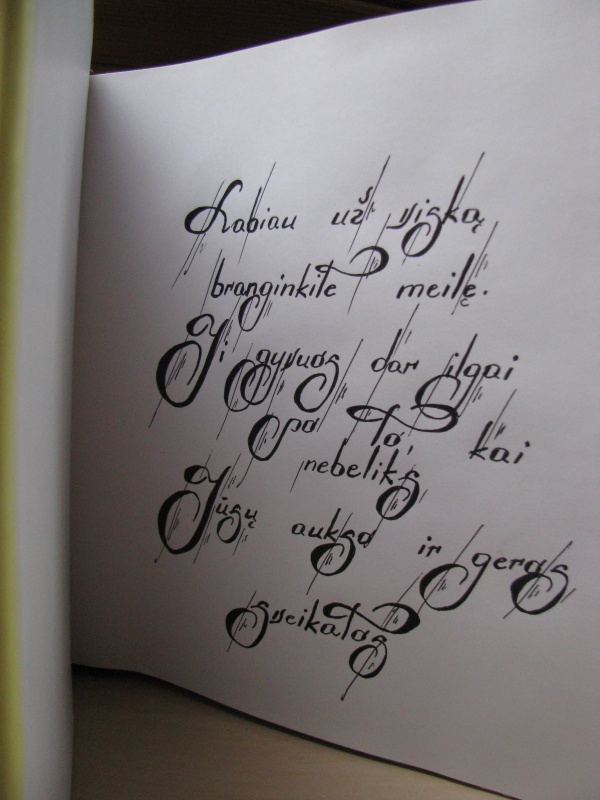 Labiau už viską
branginkite meilę.
Ji gyvuos dar ilgai
po to, kai
nebeliks
Jūsų aukso ir geros
sveikatos